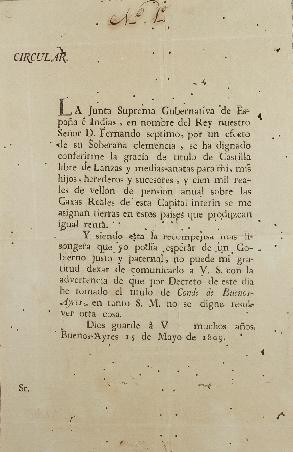 N.º 1.º
CIRCULAR.
LA Junta Suprema Gubernativa de Es-
paña é Indias, en nombre del Rey nuestro
Señor D. Fernando septimo, por un efecto
de su Soberana clemencia, se ha dignado
conferirme la gracia de titulo de Castilla
libre de Lanzas y medias-anatas para mi, mis
hijos, herederos y sucesores, y cien mil rea-
les de vellon de pension anual sobre las
Caxas Reales de esta Capital interin se me
asignan tierras en estos paises que produzcan
igual renta.
Y siendo esta la recompensa mas li-
songera que yo podia esperar de un Go-
bierno justo y paternal, no puede mi gra-
titud dexar de comunicarlo a V. S. con la
advertencia de que por Decreto de este dia
he tomado el titulo de Conde de Buenos-
Ayres, en tanto S. M. no se digne resol-
ver otra cosa.
Dios guarde á V muchos años.
Buenos-Ayres 15 de Mayo de 1809.
Sr.